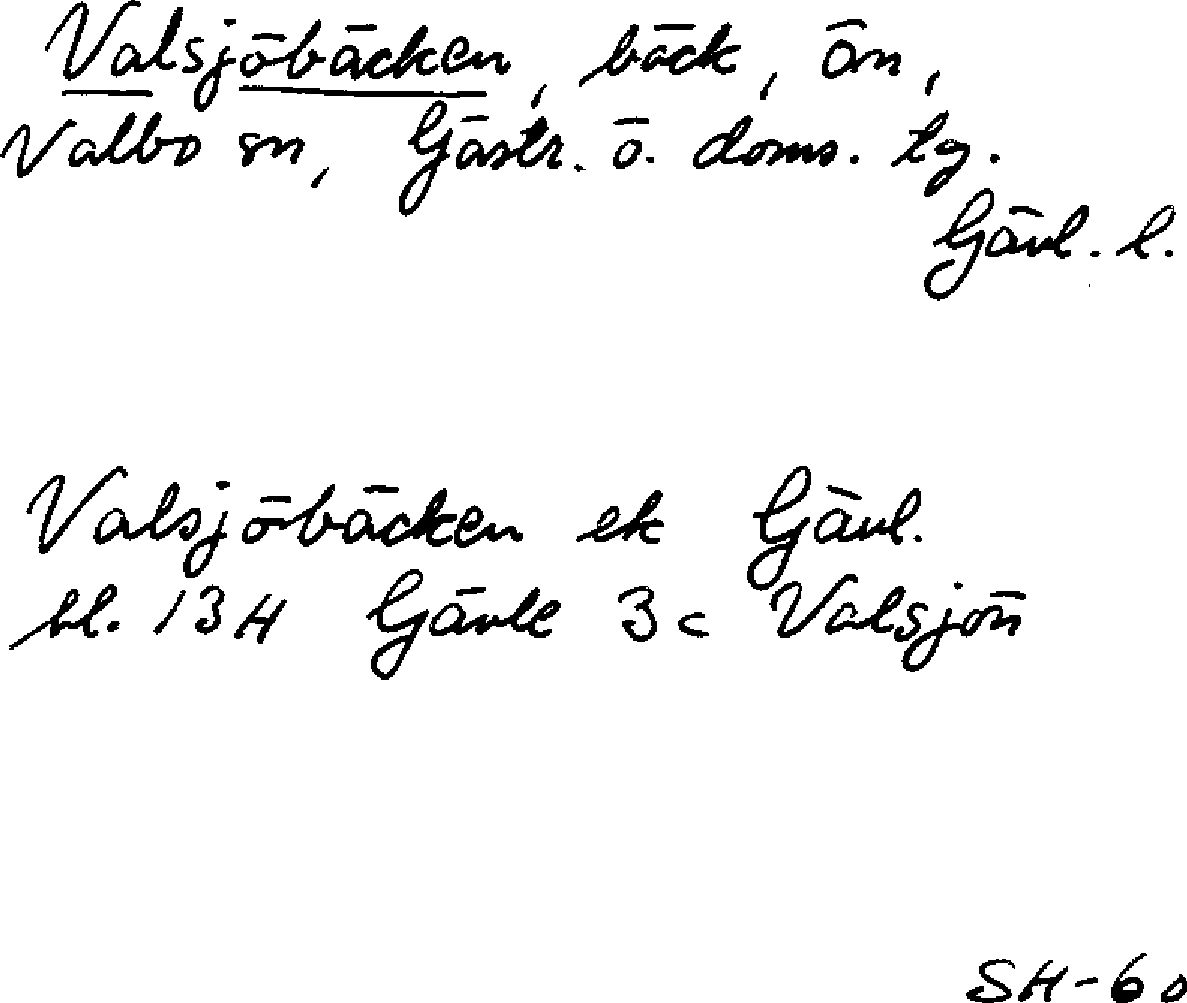 Valsjöbäcken, bäck, ön,
Valbo sn, Gästr. ö. doms. tg.
Gävl. l.
Valsjöbäcken ek Gävl.
bl. 13H Gävle 3c Valsjön
SH-60